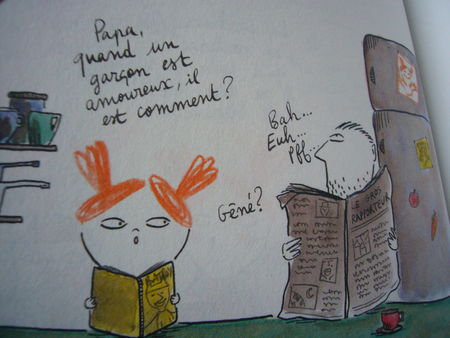 Papa,
quand un
garçon est
amoureux, il
est comment?
Bah...
Euh...
Pff...
Gêné?
LE GROS
RAPPORTEUR